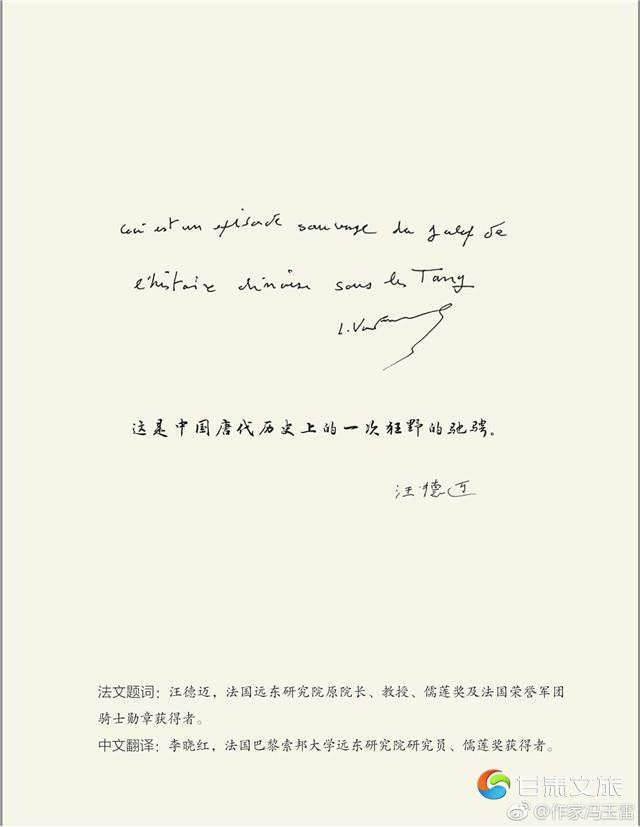 Ceci est un épisode sauvage du galop de
l'histoire chinoise sous les Tang
L. Vandermeersch
这是中国唐代历史上的一次狂野的驰骋。
汪德迈
法文题词：汪德迈，法国远东研究院原院长、教授、儒莲奖及法国荣誉军团
骑士勋章获得者。
中文翻译：李晓红，法国巴黎索邦大学远东研究院研究员、儒莲奖获得者。
甘肃文旅
@作家冯玉雷